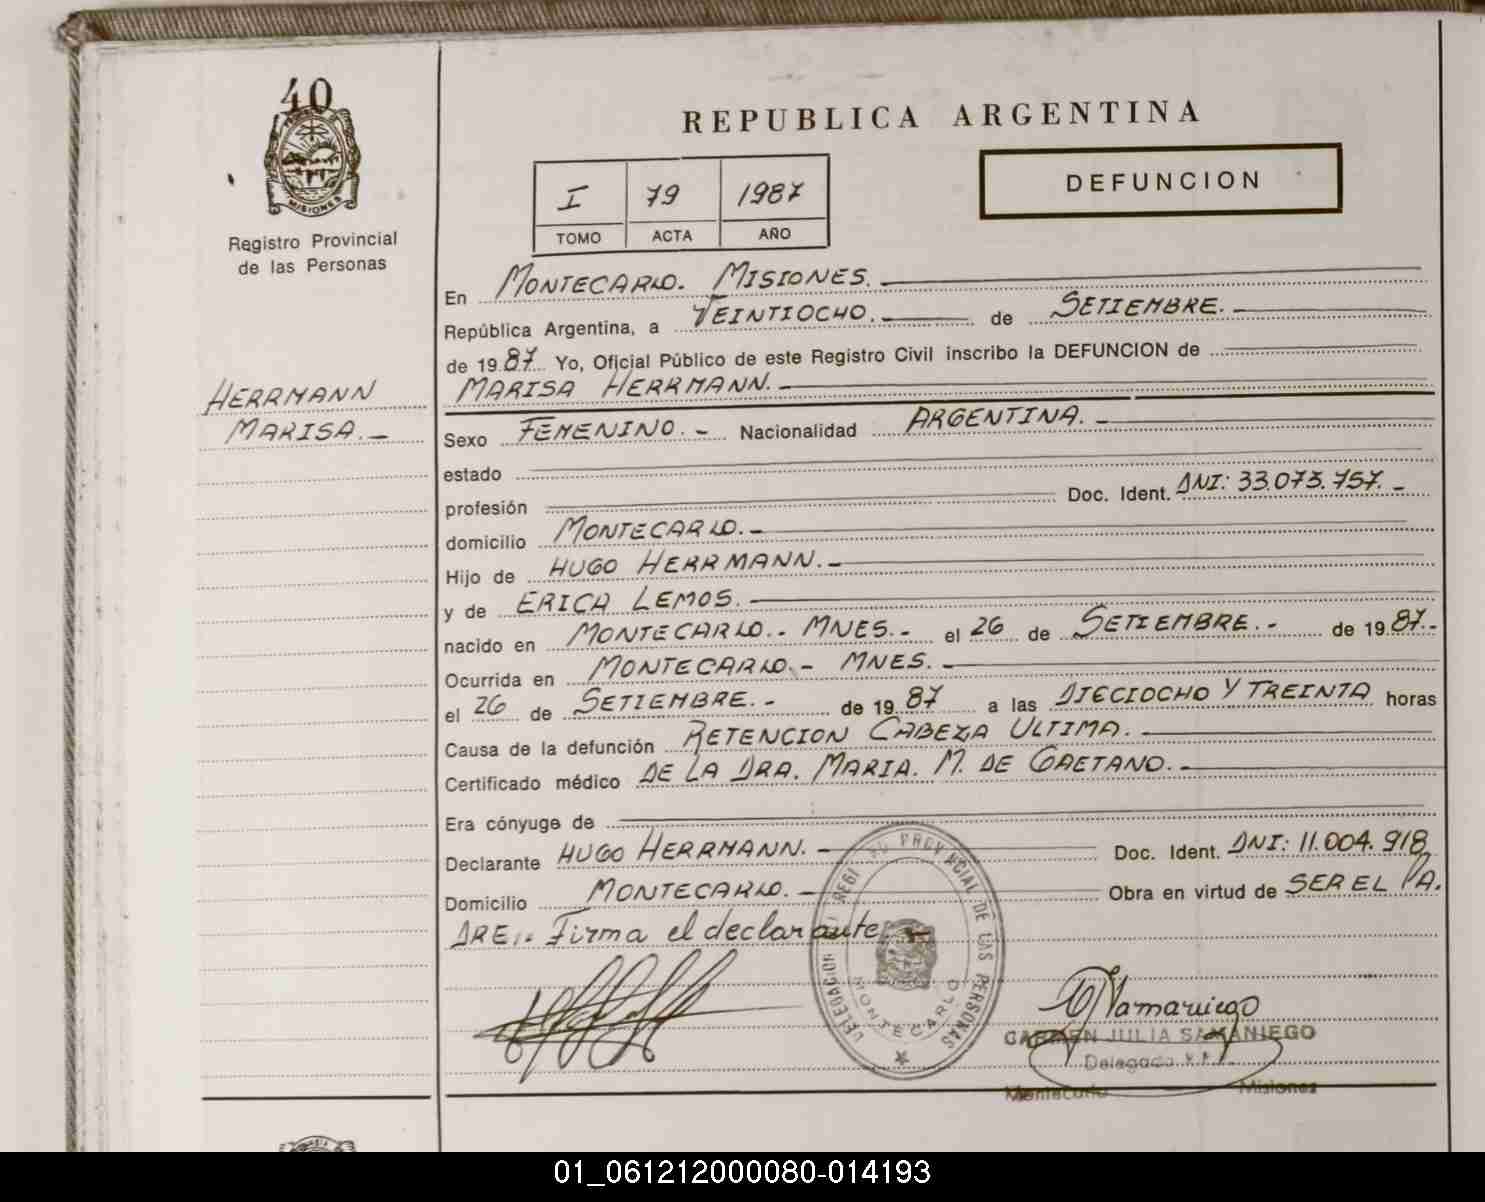 40
MISIONES
Registro Provincial
de las Personas
HERRMANN
MARISA.-
REPUBLICA ARGENTINA
I 79 1987
TOMO ACTA AÑO
DEFUNCION
En MONTECARLO. MISIONES.
República Argentina, a VEINTIOCHO. de SETIEMBRE.
de 1987 Yo, Oficial Público de este Registro Civil inscribo la DEFUNCION de
MARISA HERRMANN.-
Sexo FEMENINO.- Nacionalidad ARGENTINA.-
estado
profesión Doc. Ident. DNI: 33.073.757.-
domicilio MONTECARLO.-
Hijo de HUGO HERRMANN.-
y de ERICA LEMOS.
nacido en MONTECARLO.- MNES.- el 26 de SETIEMBRE.- de 1987.-
Ocurrida en MONTECARLO.- MNES.-
el 26 de SETIEMBRE.- de 1987 a las DIECIOCHO Y TREINTA horas
Causa de la defunción RETENCION CABEZA ULTIMA.
Certificado médico DE LA DRA. MARIA. M. DE GAETANO.-
Era cónyuge de
Declarante HUGO HERRMANN.- Doc. Ident. DNI: 11.004.918
Domicilio MONTECARLO.- Obra en virtud de SER EL PA.
DRE.. Firma el declarante.-
DELEGACION REGISTRO PROVINCIAL DE LAS PERSONAS
MONTECARLO
CSamaniego
CARMEN JULIA SAMANIEGO
Delegada
Montecarlo Misiones
01_061212000080-014193